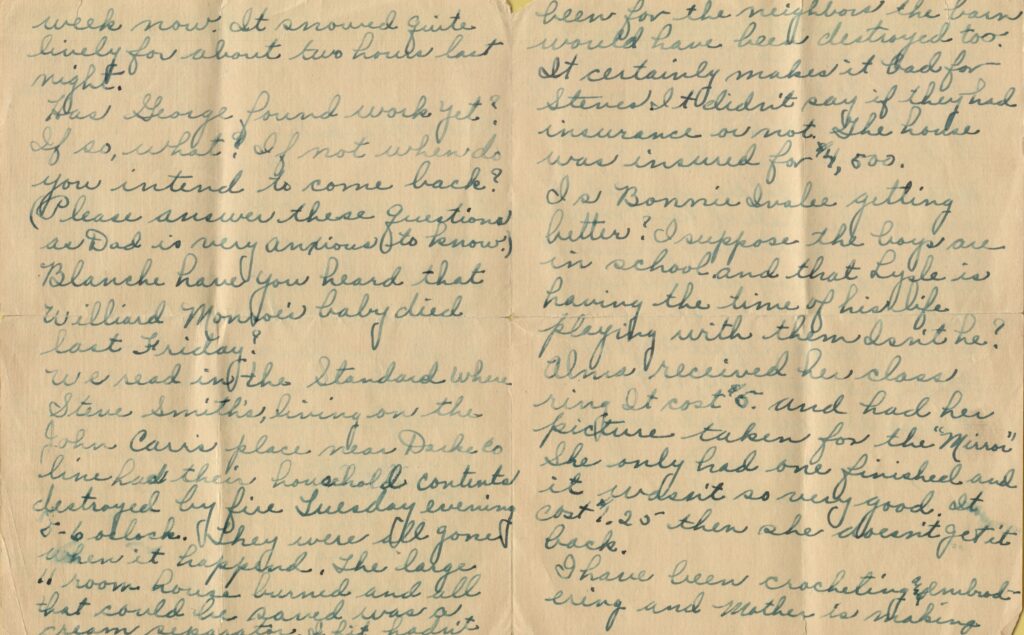 week now. It snowed quite
lively for about two hours last
night.
Has George found work yet?
If so, what? If not when do
you intend to come back?
(Please answer these questions
as Dad is very anxious (to know.)
Blanche have you heard that
Williard Monroe's baby died
last Friday?
We read in the Standard where
Steve Smith's, living on the
John Carri place near Darke Co
line had their household contents
destroyed by fire Tuesday evening
5-6 oclock. They were all gone
when it happend. The large
11 room house burned and all
that could be saved was a
cream separator. If it hadn't
been for the neighbors the barn
would have been destroyed too.
It certainly makes it bad for
Steves. It didn't say if they had
insurance or not. The house
was insured for $4,500.
Is Bonnie Ivalee getting
better? I suppose the boys are
in school and that Lysle is
having the time of his life
playing with them Isn't he?
Alma received her class
ring It cost $5. and had her
picture taken for the "Mirror"
She only had one finished and
it wasn't so very good. It
cost $1.25 then she doesn't get it
back.
I have been crocheting & embroid-
ering and Mother is making